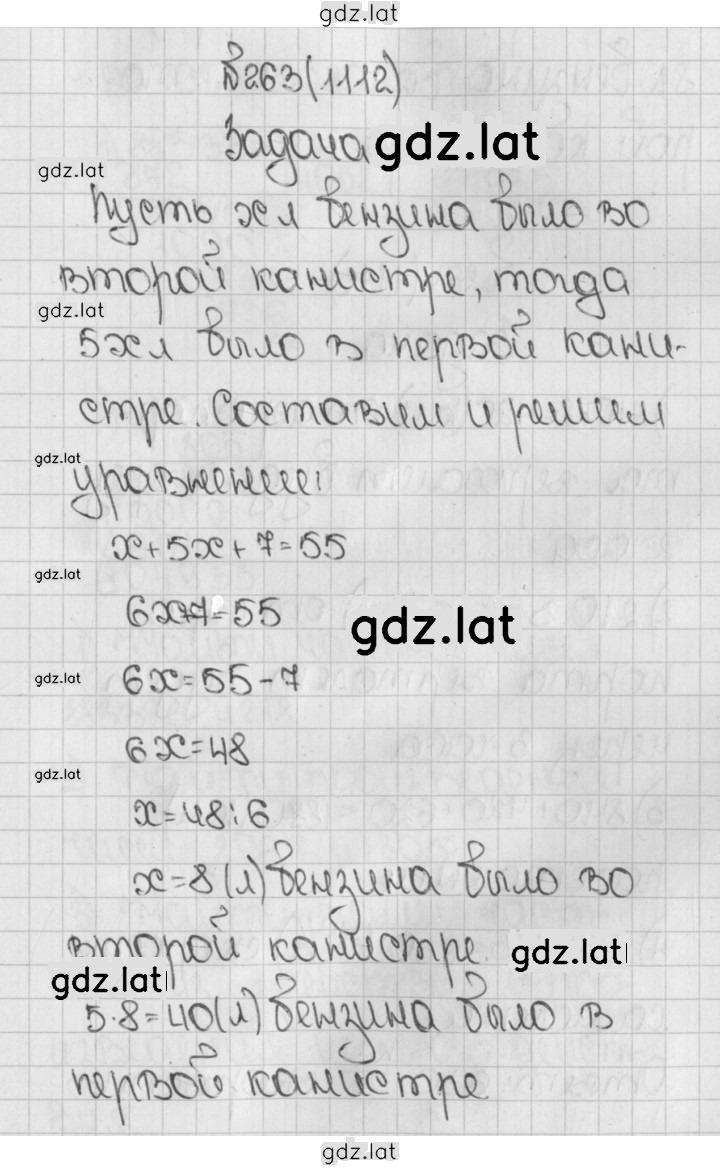 gdz.lat
№263(1112)
Задача gdz.lat
gdz.lat
Пусть x л бензина было во
второй канистре, тогда
gdz.lat
5x л было в первой кани-
стре. Составим и решим
gdz.lat
уравнение:
x+5x+7=55
gdz.lat
6x+7=55
gdz.lat
6x=55-7
gdz.lat
6x=48
gdz.lat
x=48:6
x=8(л) бензина было во
второй канистре. gdz.lat
gdz.lat
5·8=40(л) бензина было в
первой канистре.
gdz.lat